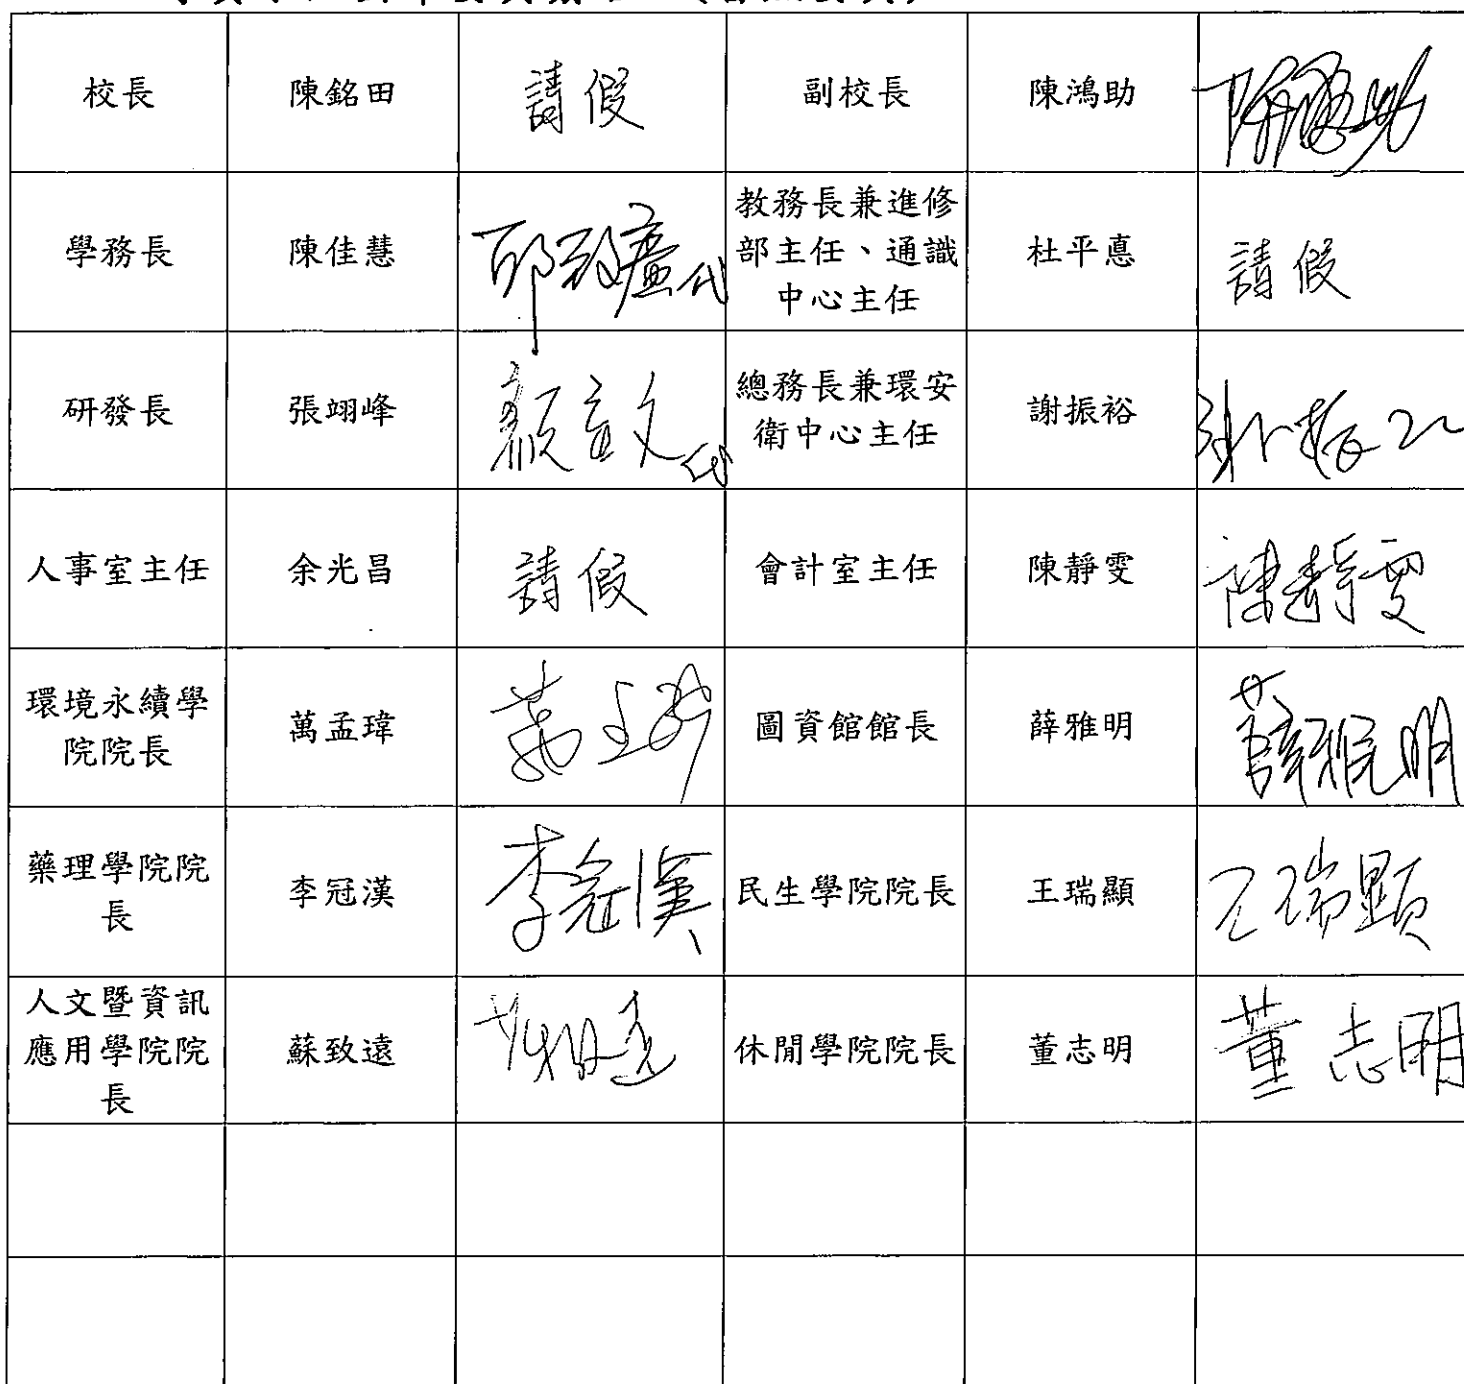 校長 陳銘田 請假 副校長 陳鴻助 陳鴻助
學務長 陳佳慧 代 教務長兼進修
部主任、通識
中心主任 杜平悳 請假
研發長 張翊峰 顏宜文代 總務長兼環安
衛中心主任 謝振裕
人事室主任 余光昌 請假 會計室主任 陳靜雯 陳靜雯
環境永續學
院院長 萬孟瑋 圖資館館長 薛雅明 薛雅明
藥理學院院
長 李冠漢 李冠漢 民生學院院長 王瑞顯 王瑞顯
人文暨資訊
應用學院院
長 蘇致遠 休閒學院院長 董志明 董志明